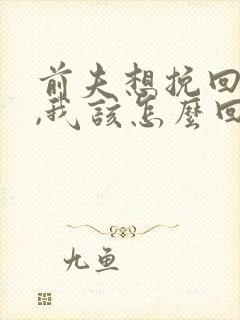 前夫想挽回
,我該怎麼回
九魚